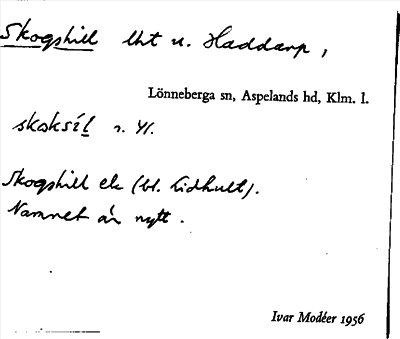 Skogshill lht u. Haddarp,
Lönneberga sn, Aspelands hd, Klm. l.
skɷksíl n. Yl.
Skogshill ek (bl. Lidhult).
Namnet är nytt.
Ivar Modéer 1956